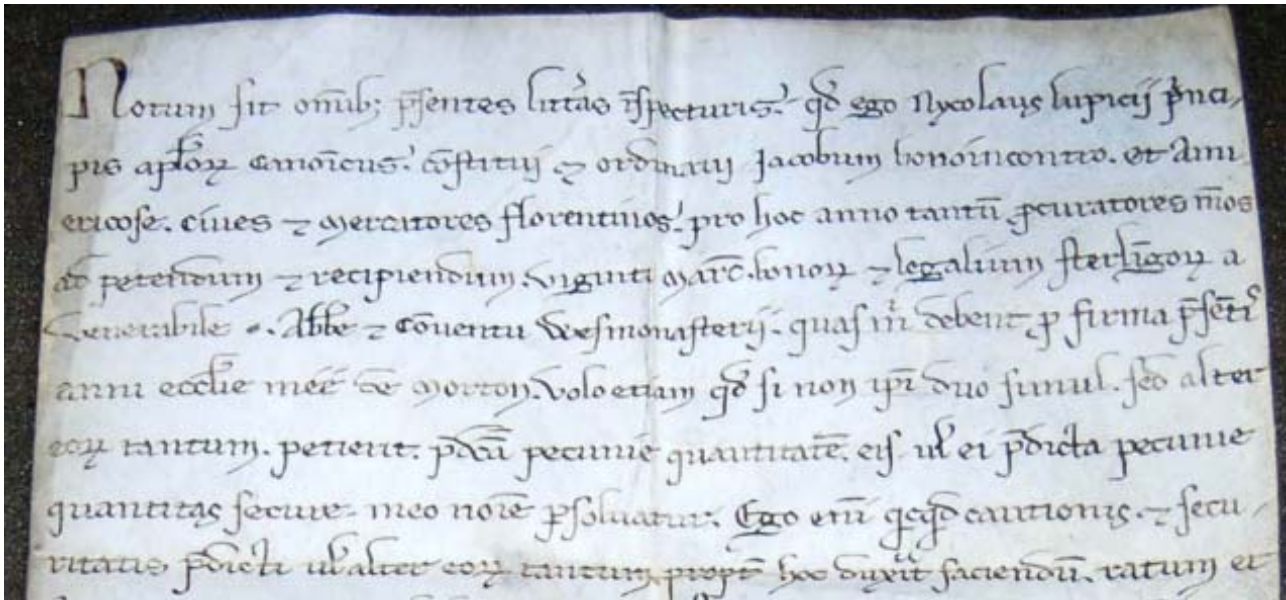 Notum sit om̄ib; p̄sentes litt̾as īspecturis. qd̄ ego Nycolaus lupicij p̾nci,
pis aplo̅ꝝ canoīcus. cōstituj ⁊ ordinauj Jacobum bonoincontro. et Ami
ericose. ciues ⁊ mercatores florentinos. pro hoc anno tantū ꝓcuratores m̄os
ad petendum ⁊ recipiendum. viginti marc̄. bonoꝝ ⁊ legalium sterlīgoꝝ a
venerabile .. Abb̄e ⁊ cōuentu Westmonasterij. quas m̾ debent ꝓ firma p̄sētis
anni eccl̄ie meę de Morton. volo etiam qd̄ si non ip̄i duo simul. sed alter
eoꝝ tantum. petierit. p̄dc̄am pecunie quantitatē. eis ul̄ ei p̄dicta pecunie
quantitas secure. meo noīe ꝑsoluatur. Ego eni̅ qͥcqͥd cautionis. ⁊ secu,
ritatis p̄dicti ul̄ alter eoꝝ tantum. propt̾ hoc duxerit faciendū. ratum et